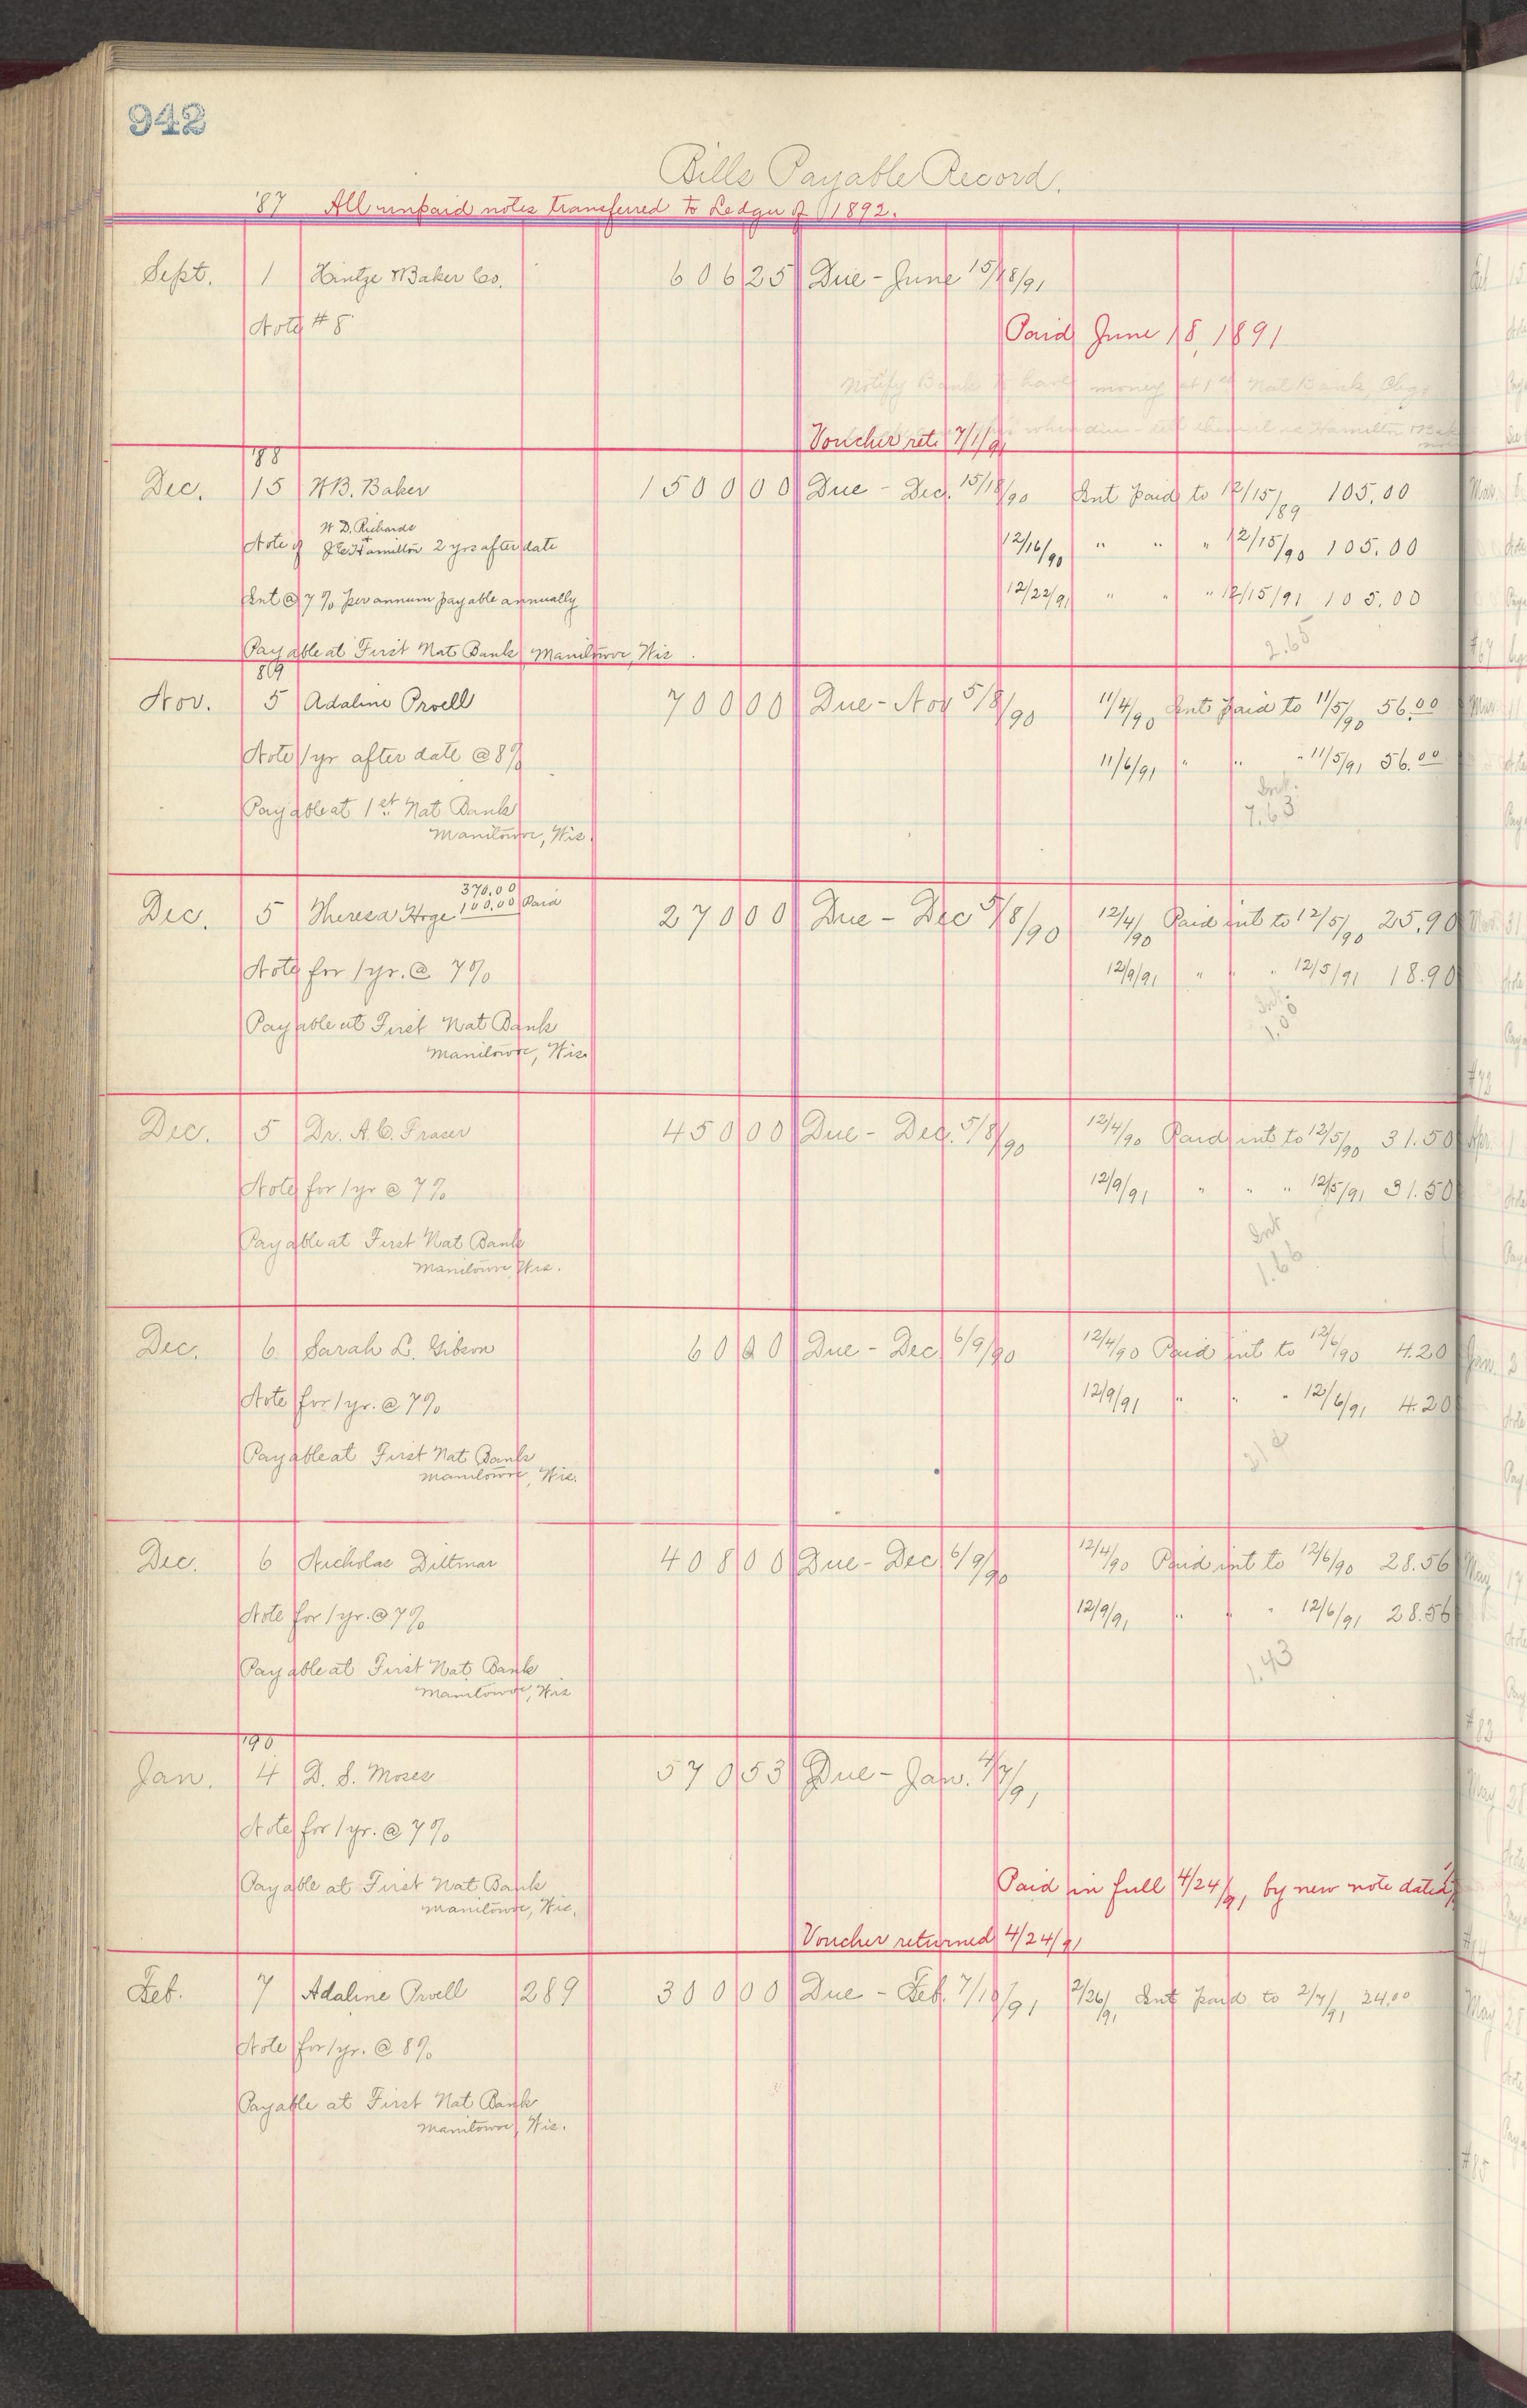 942
Bills Payable Record.
'87 All unpaid notes transferred to Ledger of 1892.
Sept. 1 Hintze & Baker Co. 606 25 Due - June 15/18/91
Note # 8
Paid June 18, 1891
Notify Bank to have money at 1st Nat Bank, Chgo
when due - tell them it is Hamilton
Voucher ret. 7/1/91
'88
Dec. 15 W B. Baker 1500 00 Due - Dec. 15/18/90 Int paid to 12/15/89 105.00
Note of W D. Richards + J E Hamilton 2 yrs after date 12/16/90 " " " 12/15/90 105.00
Int @ 7% per annum payable annually 12/22/91 " " " 12/15/91 105.00
2.65
Payable at First Nat Bank Manitowoc, Wis.
89
Nov. 5 Adaline Proell 700 00 Due - Nov 5/8/90 11/4/90 Int paid to 11/5/90 56.00
Note 1 yr after date @ 8% 11/6/91 " " " 11/5/91 56.00
Int.
7.63
Payable at 1st Nat Bank
Manitowoc, Wis.
370.00
Dec. 5 Theresa Hoge 100.00 Paid 270 00 Due - Dec 5/8/90 12/4/90 Paid int to 12/5/90 25.90
Note for 1 yr. @ 7% 12/9/91 " " " 12/5/91 18.90
Int.
1.00
Payable at First Nat Bank
Manitowoc, Wis.
Dec. 5 Dr. A. C. Fraser 450 00 Due - Dec. 5/8/90 12/4/90 Paid int to 12/5/90 31.50
Note for 1 yr @ 7% 12/9/91 " " " 12/5/91 31.50
Int
1.66
Payable at First Nat Bank
Manitowoc Wis.
Dec. 6 Sarah L. Gibson 60 00 Due - Dec 6/9/90 12/4/90 Paid int to 12/6/90 4.20
Note for 1 yr. @ 7% 12/9/91 " " " 12/6/91 4.20
Payable at First Nat Bank
Manitowoc, Wis.
Dec. 6 Nicholas Dittmar 408 00 Due - Dec 6/9/90 12/4/90 Paid int to 12/6/90 28.56
Note for 1 yr. @ 7% 12/9/91 " " " 12/6/91 28.56
1.43
Payable at First Nat Bank
Manitowoc, Wis
'90
Jan. 4 D. S. Moses 570 53 Due - Jan. 4/7/91
Note for 1 yr. @ 7%
Payable at First Nat Bank Paid in full 4/24/91 by new note dated
Manitowoc, Wis.
Voucher returned 4/24/91
Feb. 7 Adaline Proell 289 300 00 Due - Feb. 7/10/91 2/26/91 Int paid to 2/7/91 24.00
Note for 1 yr. @ 8%
Payable at First Nat Bank
Manitowoc, Wis.